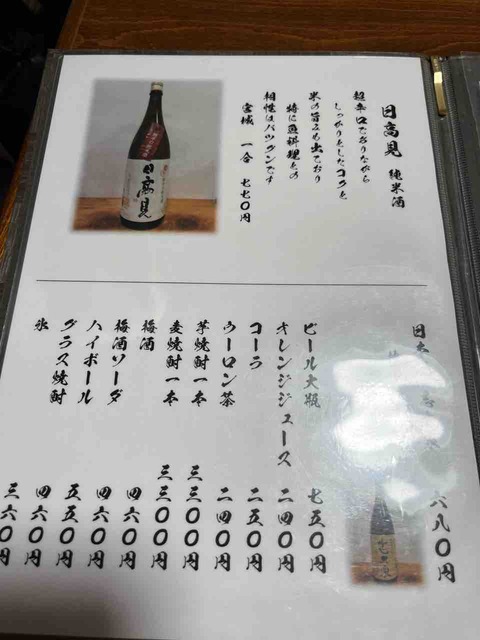 日高見 純米酒
超辛口でありながら
しっかりとしたコクと
米の旨みも出ており
特に魚料理との
相性はバツグンです
宮城 一合 七七〇円
日高見
日 六八〇円
ビール大瓶 七五〇円
オレンジジュース 二四〇円
コーラ 二五〇円
ウーロン茶 二四〇円
芋焼酎一本 三三〇〇円
麦焼酎一本 三三〇〇円
梅酒 四六〇円
梅酒ソーダ 四六〇円
ハイボール 五五〇円
グラス焼酎 四六〇円
氷 三六〇円